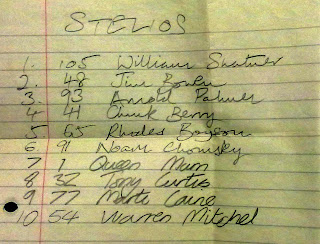 STELIOS
1. 105 William Shatner
2. 48 Jim Bowen
3. 93 Arnold Palmer
4 41 Chuck Berry
5 65 Rhodes Boyson
6 91 Noam Chomsky
7 1 Queen Mum
8 32 Tony Curtis
9 77 Marti Caine
10 54 Warren Mitchel